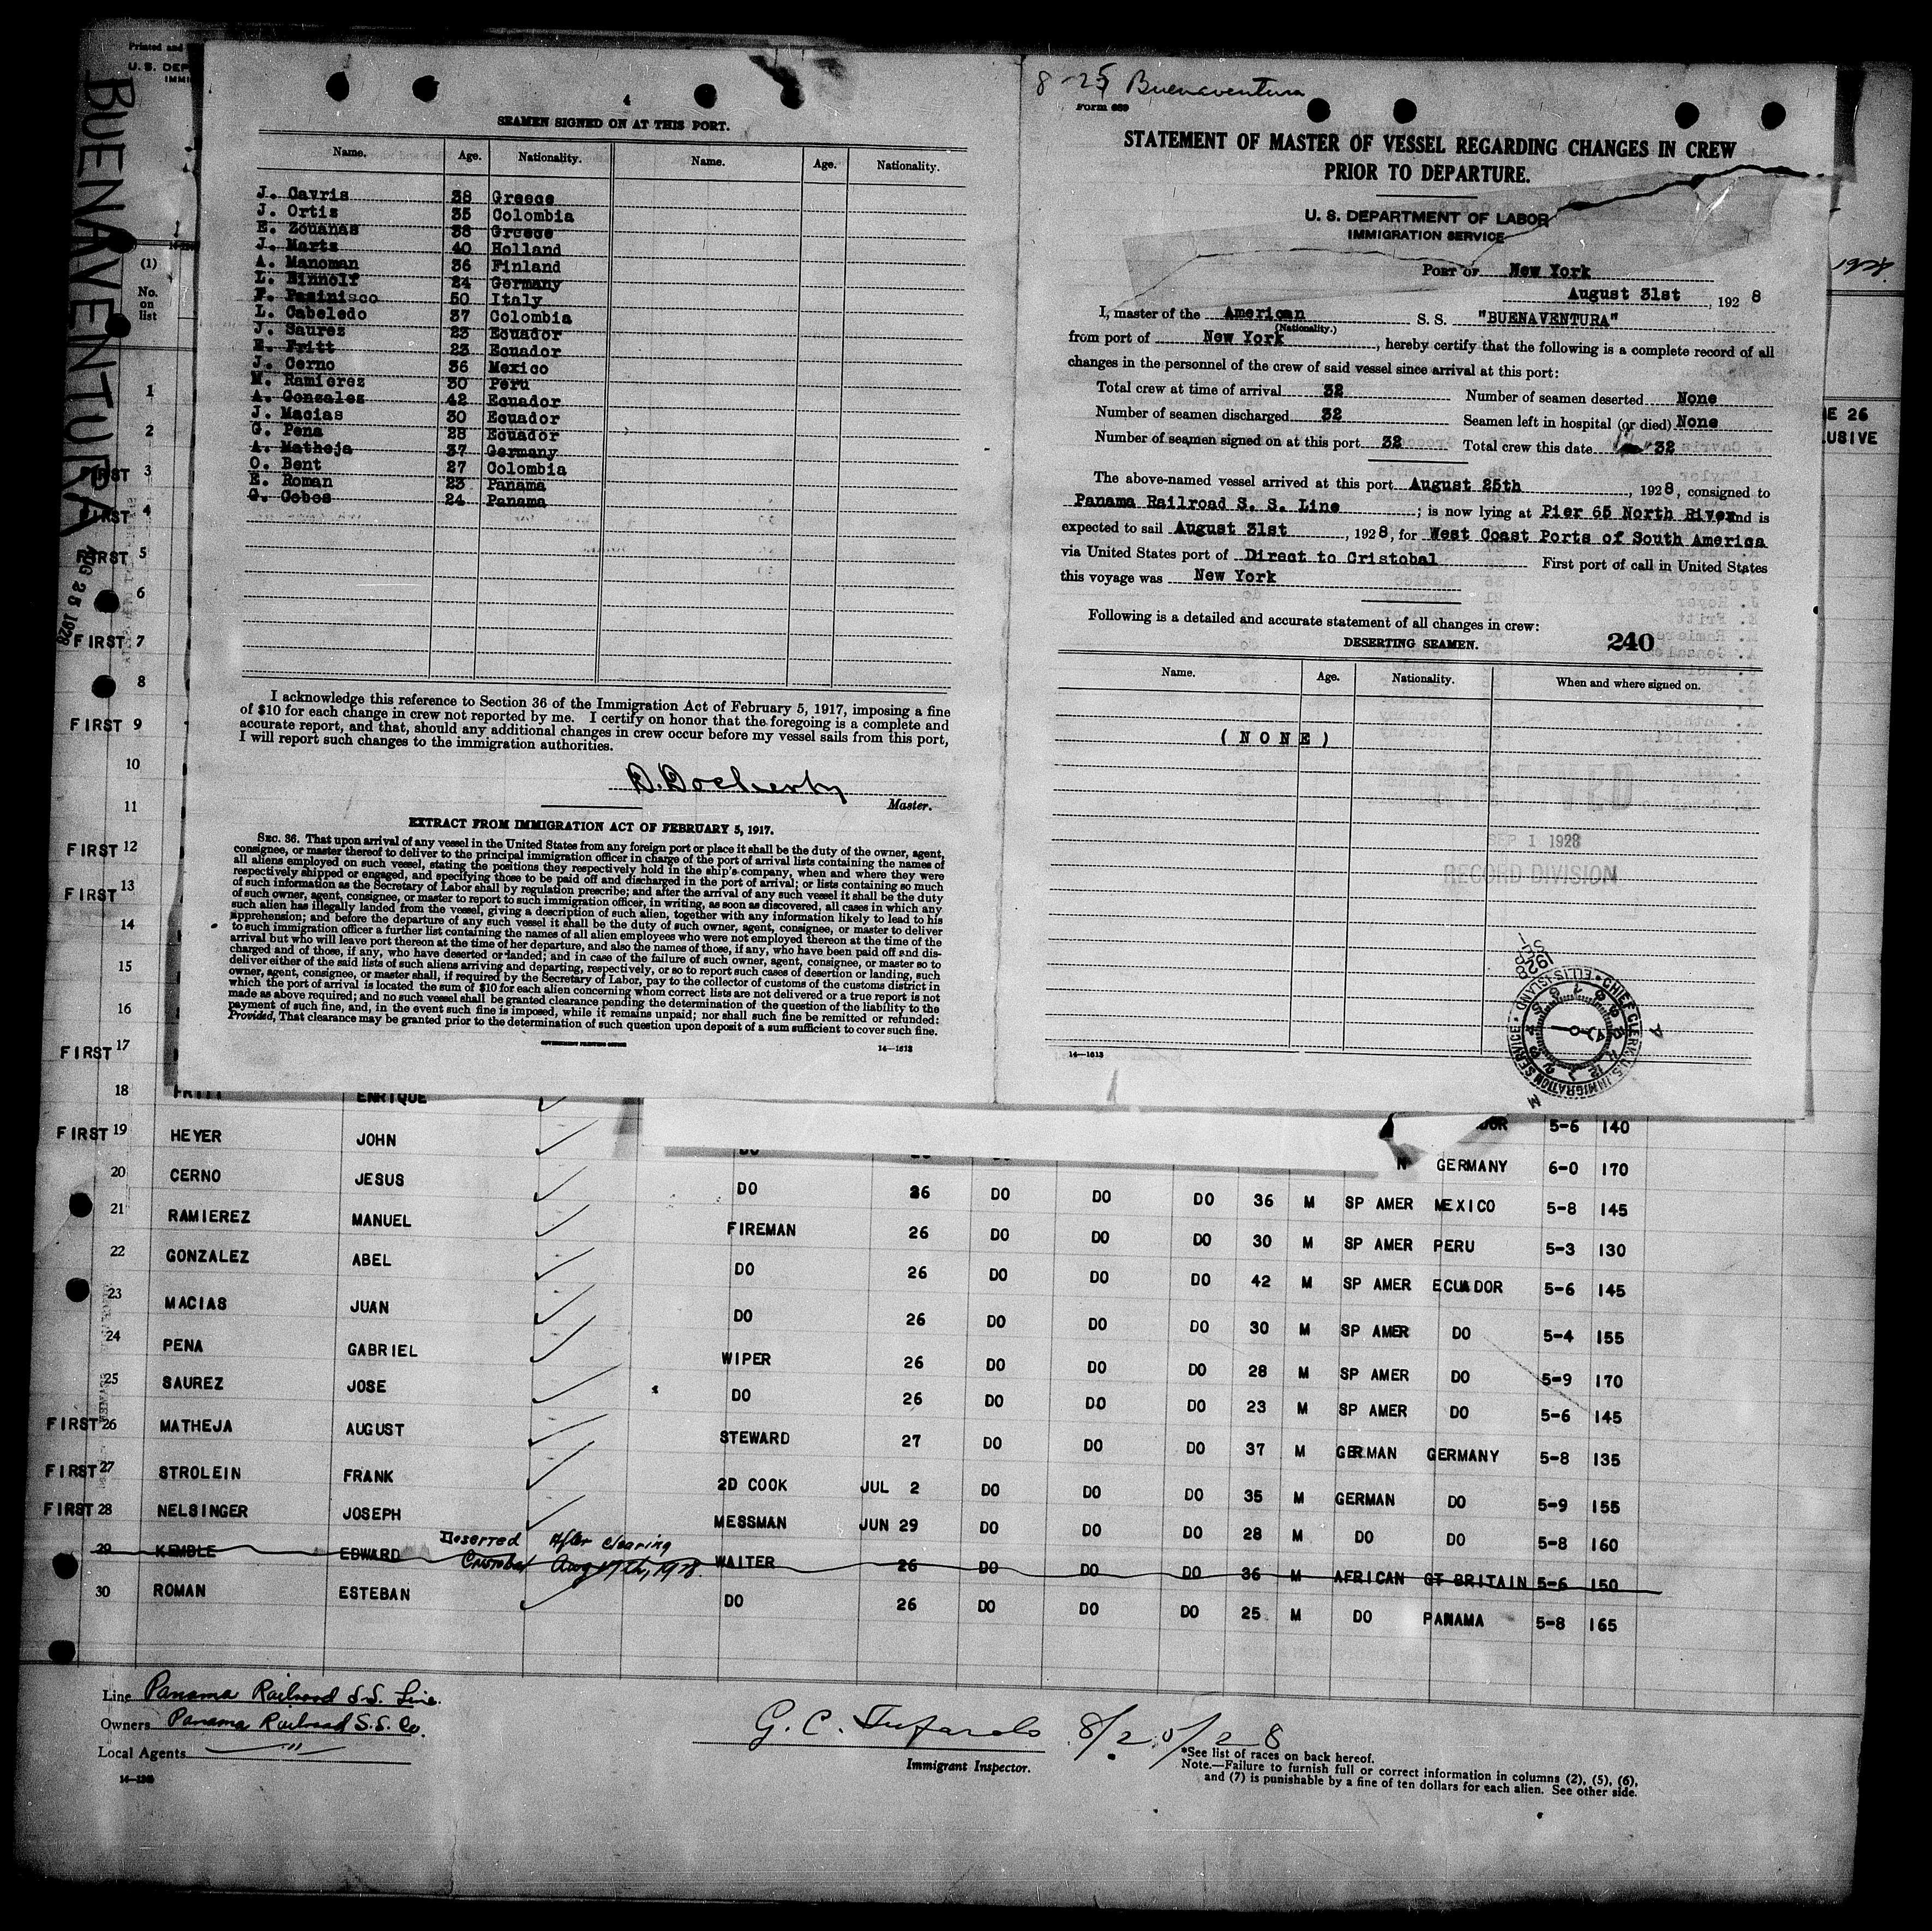 Printed and
U. S. DEP
IMMI
BUENAVENTURA
AUG 25 1928
(1)
No.
on
list
4
SEAMEN SIGNED ON AT THIS PORT.
Name. Age. Nationality. Name. Age. Nationality.
J. Cavris 38 Greece
J. Ortiz 35 Colombia
E. Zouanas 38 Greece
J. Marts 40 Holland
A. Manoman 36 Finland
L. Binnolf 24 Germany
F. Pasinisco 50 Italy
L. Cabeledo 37 Colombia
J. Saurez 23 Ecuador
E. Fritt 23 Ecuador
J. Cerno 36 Mexico
M. Ramierez 30 Peru
A. Gonzales 42 Ecuador
J. Macias 30 Ecuador
G. Pena 28 Ecuador
A. Matheja 37 Germany
O. Bent 27 Colombia
E. Roman 23 Panama
G. Cobos 24 Panama
I acknowledge this reference to Section 36 of the Immigration Act of February 5, 1917, imposing a fine
of $10 for each change in crew not reported by me. I certify on honor that the foregoing is a complete and
accurate report, and that, should any additional changes in crew occur before my vessel sails from this port,
I will report such changes to the immigration authorities.
D. Docherty
Master.
EXTRACT FROM IMMIGRATION ACT OF FEBRUARY 5, 1917.
SEC. 36. That upon arrival of any vessel in the United States from any foreign port or place it shall be the duty of the owner, agent,
consignee, or master thereof to deliver to the principal immigration officer in charge of the port of arrival lists containing the names of
all aliens employed on such vessel, stating the positions they respectively hold in the ship's company, when and where they were
respectively shipped or engaged, and specifying those to be paid off and discharged in the port of arrival; or lists containing so much
of such information as the Secretary of Labor shall by regulation prescribe; and after the arrival of any such vessel it shall be the duty
of such owner, agent, consignee, or master to report to such immigration officer, in writing, as soon as discovered, all cases in which any
such alien has illegally landed from the vessel, giving a description of such alien, together with any information likely to lead to his
apprehension; and before the departure of any such vessel it shall be the duty of such owner, agent, consignee, or master to deliver
to such immigration officer a further list containing the names of all alien employees who were not employed thereon at the time of the
arrival but who will leave port thereon at the time of her departure, and also the names of those, if any, who have been paid off and dis-
charged and of those, if any, who have deserted or landed; and in case of the failure of such owner, agent, consignee, or master so to
deliver either of the said lists of such aliens arriving and departing, respectively, or so to report such cases of desertion or landing, such
owner, agent, consignee, or master shall, if required by the Secretary of Labor, pay to the collector of customs of the customs district in
which the port of arrival is located the sum of $10 for each alien concerning whom correct lists are not delivered or a true report is not
made as above required; and no such vessel shall be granted clearance pending the determination of the question of the liability to the
payment of such fine, and, in the event such fine is imposed, while it remains unpaid; nor shall such fine be remitted or refunded:
Provided, That clearance may be granted prior to the determination of such question upon deposit of a sum sufficient to cover such fine.
GOVERNMENT PRINTING OFFICE 14—1613
8-25 Buenaventura
Form 689
STATEMENT OF MASTER OF VESSEL REGARDING CHANGES IN CREW
PRIOR TO DEPARTURE.
U. S. DEPARTMENT OF LABOR
IMMIGRATION SERVICE
PORT OF New York
August 31st, 1928
I, master of the American S. S. "BUENAVENTURA"
(Nationality.)
from port of New York, hereby certify that the following is a complete record of all
changes in the personnel of the crew of said vessel since arrival at this port:
Total crew at time of arrival 32 Number of seamen deserted None
Number of seamen discharged 32 Seamen left in hospital (or died) None
Number of seamen signed on at this port 32 Total crew this date 32
The above-named vessel arrived at this port August 25th, 1928, consigned to
Panama Railroad S. S. Line; is now lying at Pier 65 North River and is
expected to sail August 31st, 1928, for West Coast Ports of South America
via United States port of Direct to Cristobal First port of call in United States
this voyage was New York
Following is a detailed and accurate statement of all changes in crew:
DESERTING SEAMEN. 240
Name. Age. Nationality. When and where signed on.
( N O N E )
SEP 1 1928
RECORD DIVISION
CHIEF CLERK U.S. IMMIGRATION SERVICE · ELLIS ISLAND
14—1613
E 26
LUSIVE
1
2
FIRST 3
FIRST 4
FIRST 5
6
FIRST 7
8
FIRST 9
10
11
FIRST 12
FIRST 13
14
15
16
FIRST 17
18 FRITT ENRIQUE DOR 5-6 140
FIRST 19 HEYER JOHN DO 26 DO N GERMANY 6-0 170
20 CERNO JESUS DO 26 DO DO DO 36 M SP AMER MEXICO 5-8 145
21 RAMIEREZ MANUEL FIREMAN 26 DO DO DO 30 M SP AMER PERU 5-3 130
22 GONZALEZ ABEL DO 26 DO DO DO 42 M SP AMER ECUADOR 5-6 145
23 MACIAS JUAN DO 26 DO DO DO 30 M SP AMER DO 5-4 155
24 PENA GABRIEL WIPER 26 DO DO DO 28 M SP AMER DO 5-9 170
25 SAUREZ JOSE DO 26 DO DO DO 23 M SP AMER DO 5-6 145
FIRST 26 MATHEJA AUGUST STEWARD 27 DO DO DO 37 M GERMAN GERMANY 5-8 135
FIRST 27 STROLEIN FRANK 2D COOK JUL 2 DO DO DO 35 M GERMAN DO 5-9 155
FIRST 28 NELSINGER JOSEPH MESSMAN JUN 29 DO DO DO 28 M DO DO 5-8 160
Deserted After clearing
Cristobal Aug 17th, 1928.
29 KEMBLE EDWARD WAITER 26 DO DO DO 36 M AFRICAN GT BRITAIN 5-6 150
30 ROMAN ESTEBAN DO 26 DO DO DO 25 M DO PANAMA 5-8 165
Line Panama Railroad S.S. Line.
Owners Panama Railroad S.S. Co.
Local Agents "
14—1240
G. C. Tufarolo 8/25/28
Immigrant Inspector.
*See list of races on back hereof.
Note.—Failure to furnish full or correct information in columns (2), (5), (6),
and (7) is punishable by a fine of ten dollars for each alien. See other side.